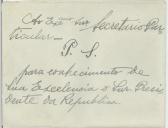 Ao Exmo Snr Secretario Par
ticular—
P. S.
para conhecimento de
Sua Excelencia o Snr Presi
dente da Republica.